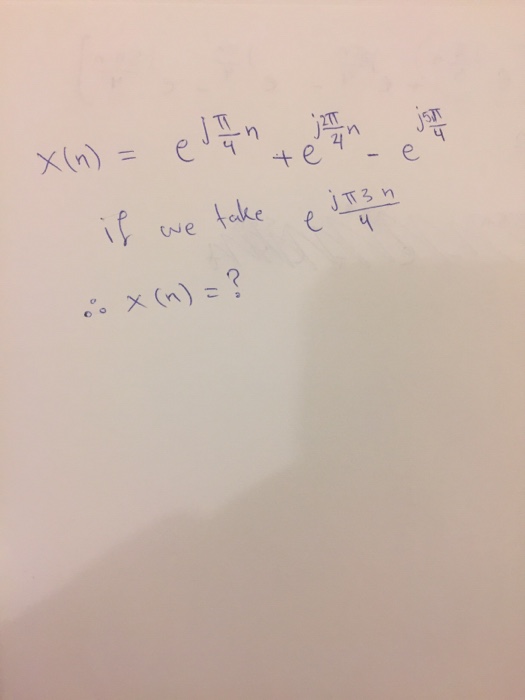 x(n) = e^{j\frac{π}{4}n} + e^{j\frac{2π}{4}n} - e^{j\frac{5π}{4}}
if we take e^{\frac{jπ3n}{4}}
∴ x(n) = ?